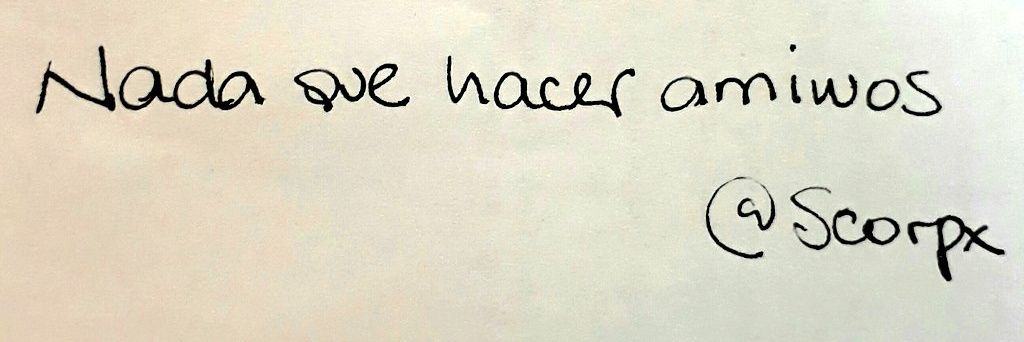 Nada que hacer amiwos
@Scorpx